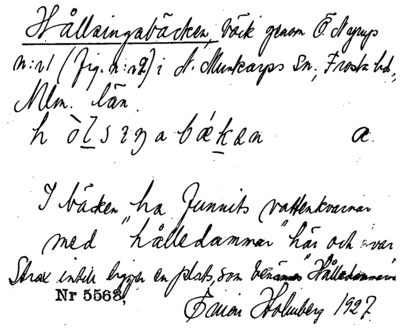 Hållsingabäcken, bäck genom Ö. Nyrups
n:r 1 (fig. n:r 2) i N. Munkarps sn, Frosta hd,
Mlm. län.
h ò l s i ŋ a b æ k a n a.
I bäcken ha funnits vattenkvarnar
med "hålledammar" här och var
Strax intill ligger en plats, som benämnes Hålledammarna
Nr 5563,
Einar Holmberg 1927.